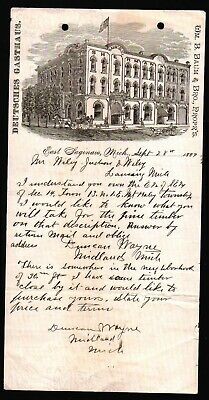 DEUTSCHES GASTHAUS.
Wm. B. Baum & Bro., Propr's.
East Saginaw, Mich. Sept 28th 188
Mr Wiley Justus & Wiley
Lansing Mich
I understand you own the E 1/2 of
Sec 14, Town 13 N
I would like to know what you
will take for the pine timber
on that description. Answer by
return Mail and oblige
address Duncan Wayne
Midland Mich
There is somewhere in the neighborhood
of I have some timber
close by it and would like to
purchase yours. state your
price and terms
Duncan Wayne
Midland
Mich